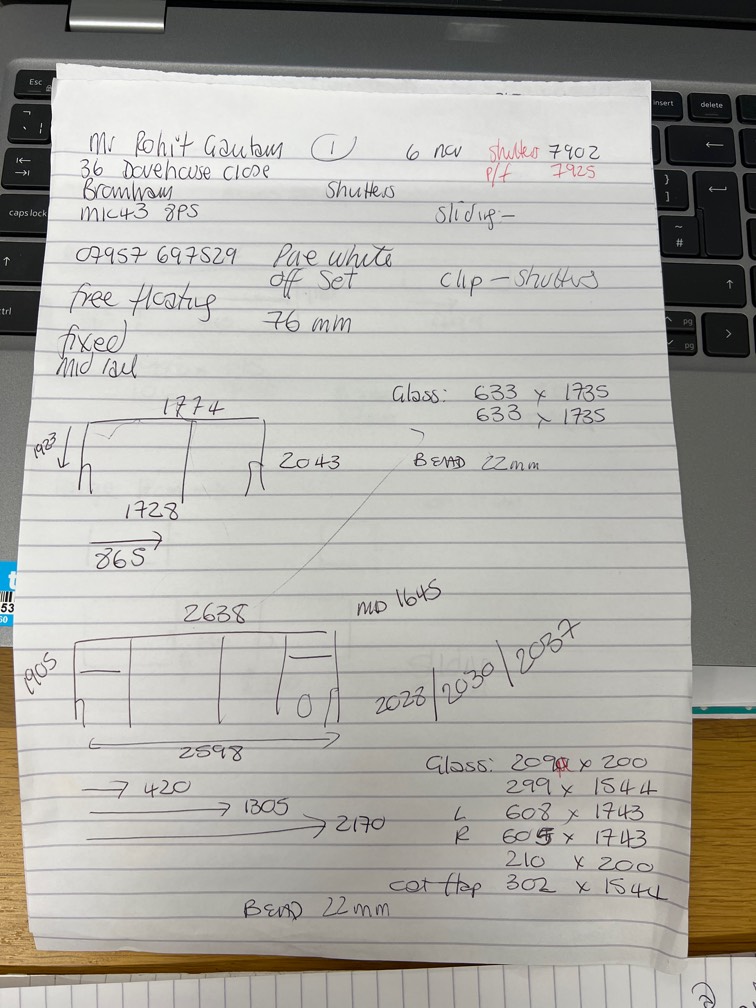 Mr Rohit Gautam ① 6 nov shutters 7902
36 Dovehouse close P/f 7925
Bromham Shutters
MK43 8PS sliding-
07957 697529 Pure white
off set clip - shutters
free floating
76 mm
fixed
Mid rail
Glass: 633 x 1735
633 x 1735
1774
1923
2043
BEAD 22mm
1728
865
2638 MD 1645
1905
2028/2030/2037
2598
Glass: 209 x 200
420 299 x 1544
1305 L 608 x 1743
2170 R 605 x 1743
210 x 200
cat flap 302 x 1544
BEAD 22mm
Esc
caps lock
ctrl
insert
delete
pg
pg
53
60